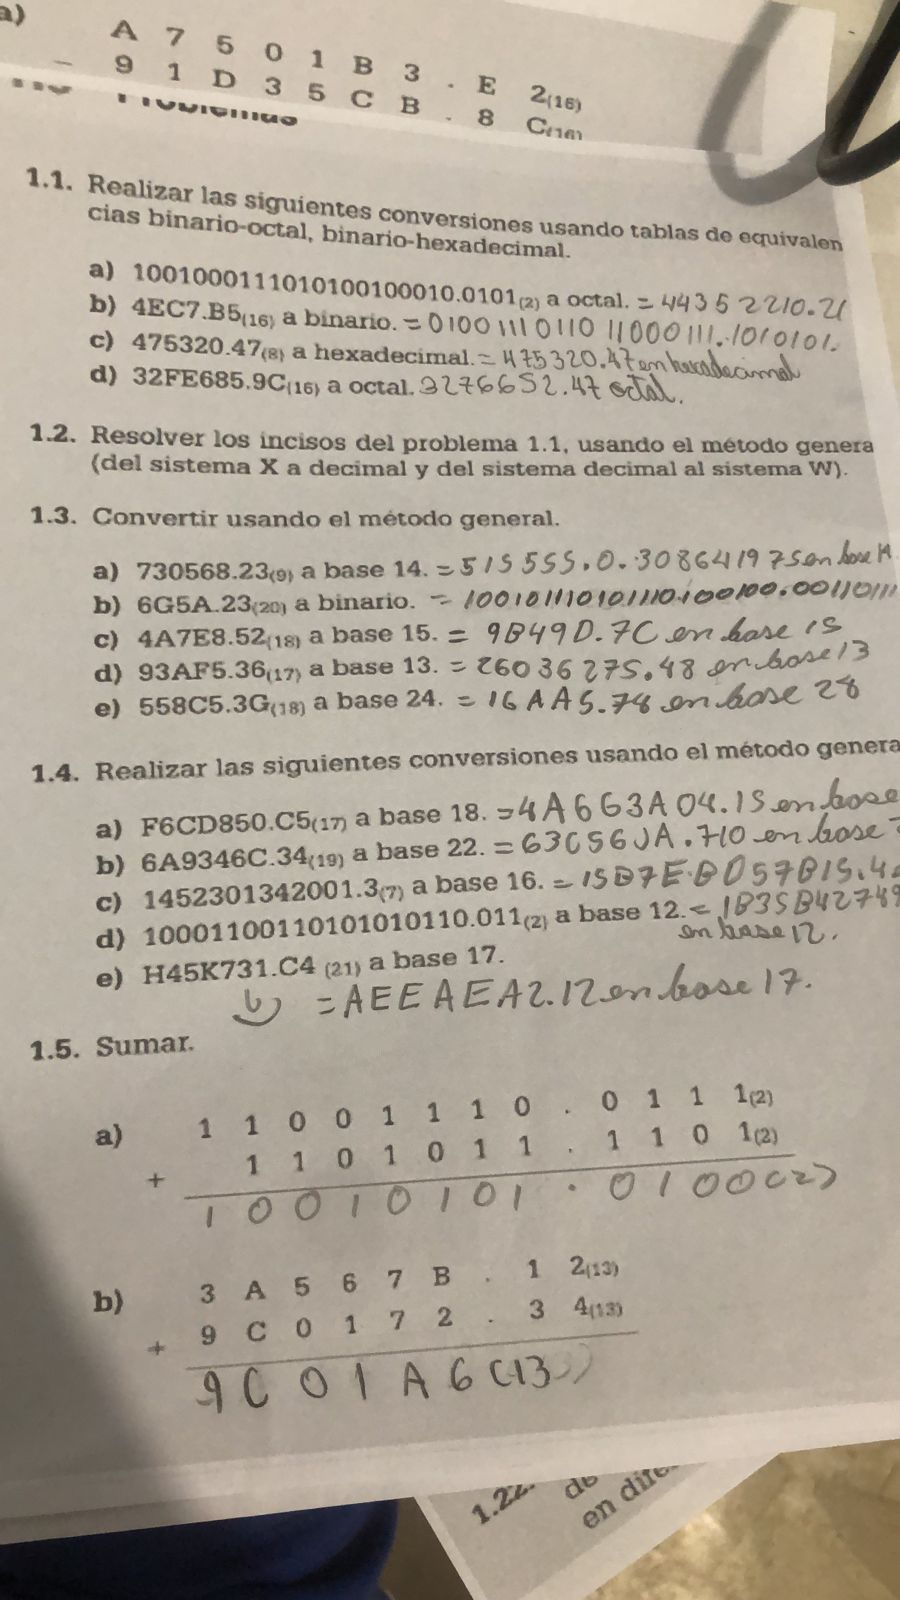 a)
A 7 5 0 1 B 3 . E 2(16)
- 9 1 D 3 5 C B . 8 C(16)
Problemas
1.1. Realizar las siguientes conversiones usando tablas de equivalen
cias binario-octal, binario-hexadecimal.
a) 1001000111010100100010.0101(2) a octal. = 44352210.21
b) 4EC7.B5(16) a binario. = 0100111011011000111.1010101.
c) 475320.47(8) a hexadecimal. = 475320.47 en hexadecimal
d) 32FE685.9C(16) a octal. 3276652.47 octal.
1.2. Resolver los incisos del problema 1.1, usando el método genera
(del sistema X a decimal y del sistema decimal al sistema W).
1.3. Convertir usando el método general.
a) 730568.23(9) a base 14. = 515555.0.308641975 en base 14
b) 6G5A.23(20) a binario. = 1001011101011101100100.00110111
c) 4A7E8.52(18) a base 15. = 9B49D.7C en base 15
d) 93AF5.36(17) a base 13. = 26036275.48 en base 13
e) 558C5.3G(18) a base 24. = 16AA5.78 en base 28
1.4. Realizar las siguientes conversiones usando el método genera
a) F6CD850.C5(17) a base 18. = 4A6G3A04.15 en base
b) 6A9346C.34(19) a base 22. = 63C56JA.710 en base
c) 1452301342001.3(7) a base 16. = 15B7EBD57B15.4
d) 10001100110101010110.011(2) a base 12. = 1B35B42749
en base 12.
e) H45K731.C4 (21) a base 17.
= AEEAEA2.12 en base 17.
1.5. Sumar.
a) 1 1 0 0 1 1 1 0 . 0 1 1 1(2)
+ 1 1 0 1 0 1 1 . 1 1 0 1(2)
1 0 0 1 0 1 0 1 . 0 1 0 0 (2)
b) 3 A 5 6 7 B . 1 2(13)
+ 9 C 0 1 7 2 . 3 4(13)
9 C 0 1 A 6 (13)
1.22.
de
en dife